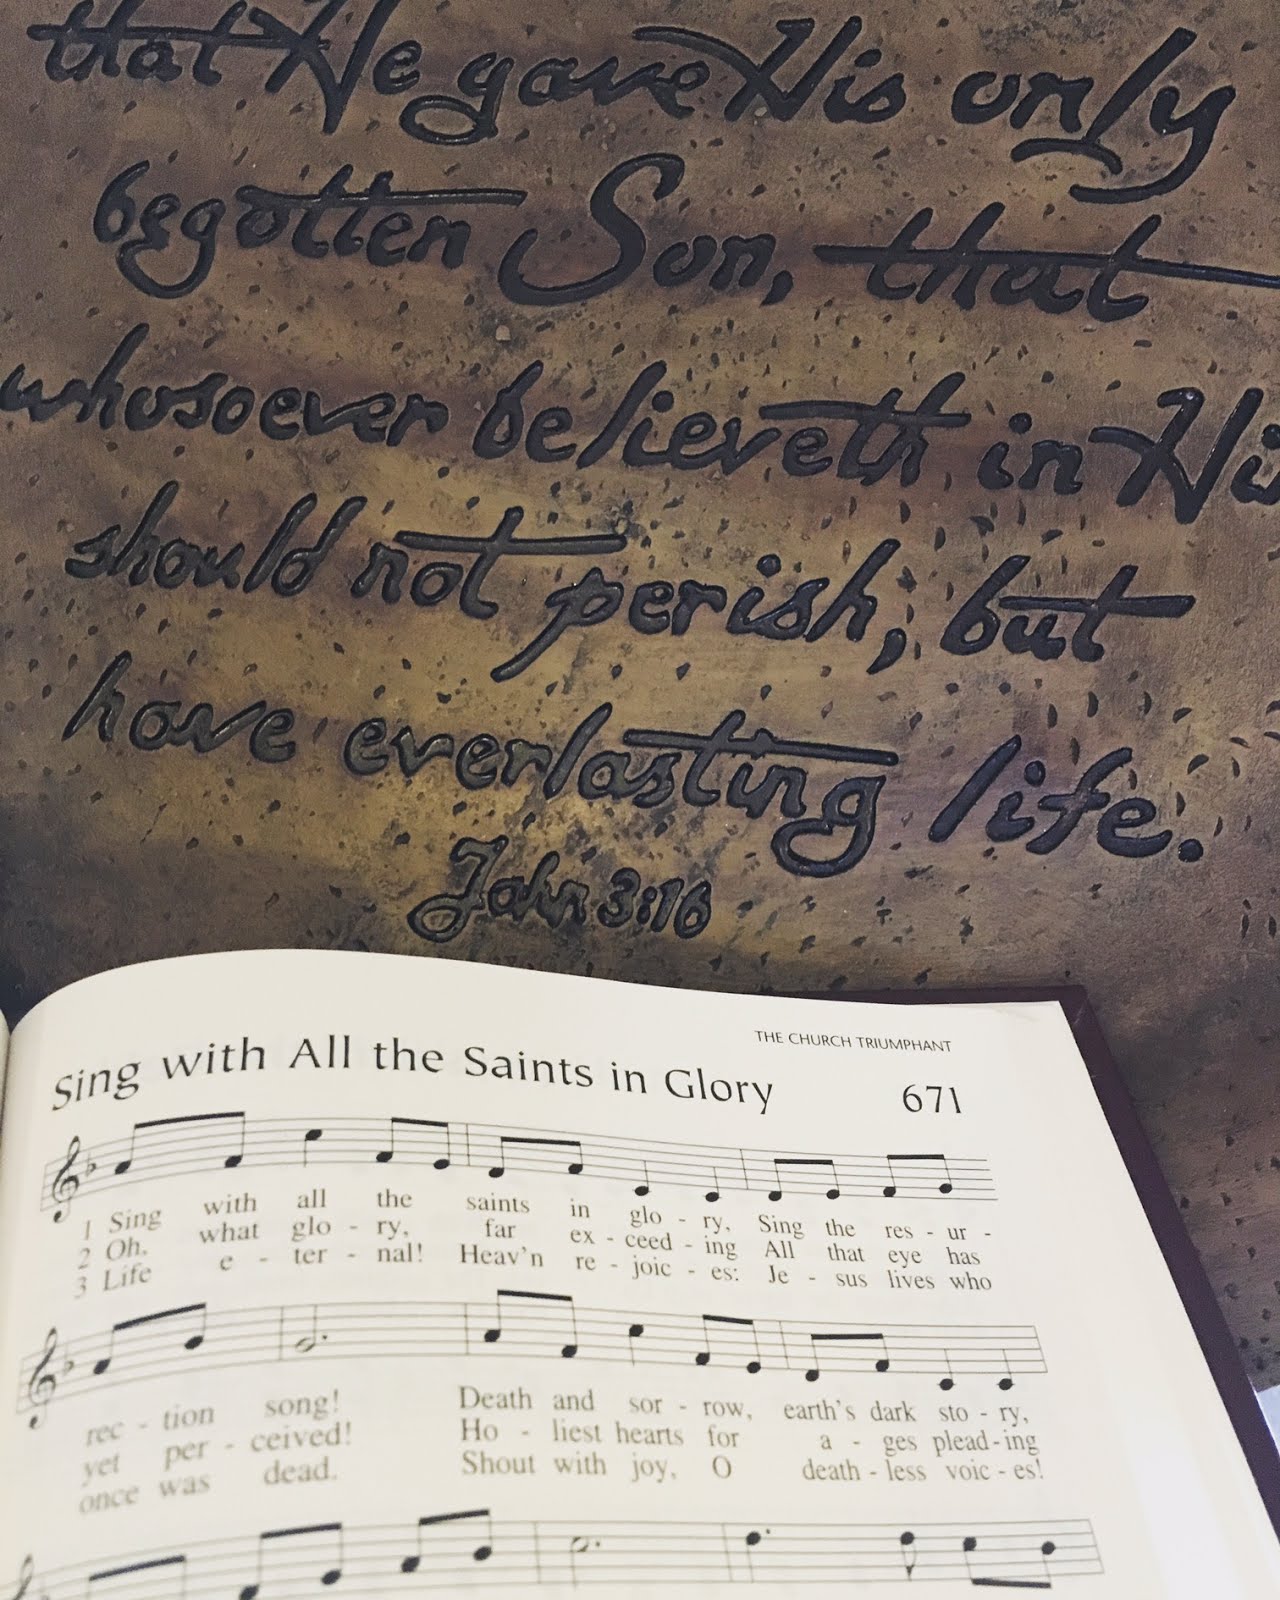 that He gave His only
begotten Son, that
whosoever believeth in Hi
should not perish, but
have everlasting life.
John 3:16
THE CHURCH TRIUMPHANT
Sing with All the Saints in Glory 671
1 Sing with all the saints in glo - ry, Sing the res - ur -
2 Oh, what glo - ry, far ex - ceed - ing All that eye has
3 Life e - ter - nal! Heav'n re - joic - es: Je - sus lives who
rec - tion song! Death and sor - row, earth's dark sto - ry,
yet per - ceived! Ho - liest hearts for a - ges plead - ing
once was dead. Shout with joy, O death - less voic - es!